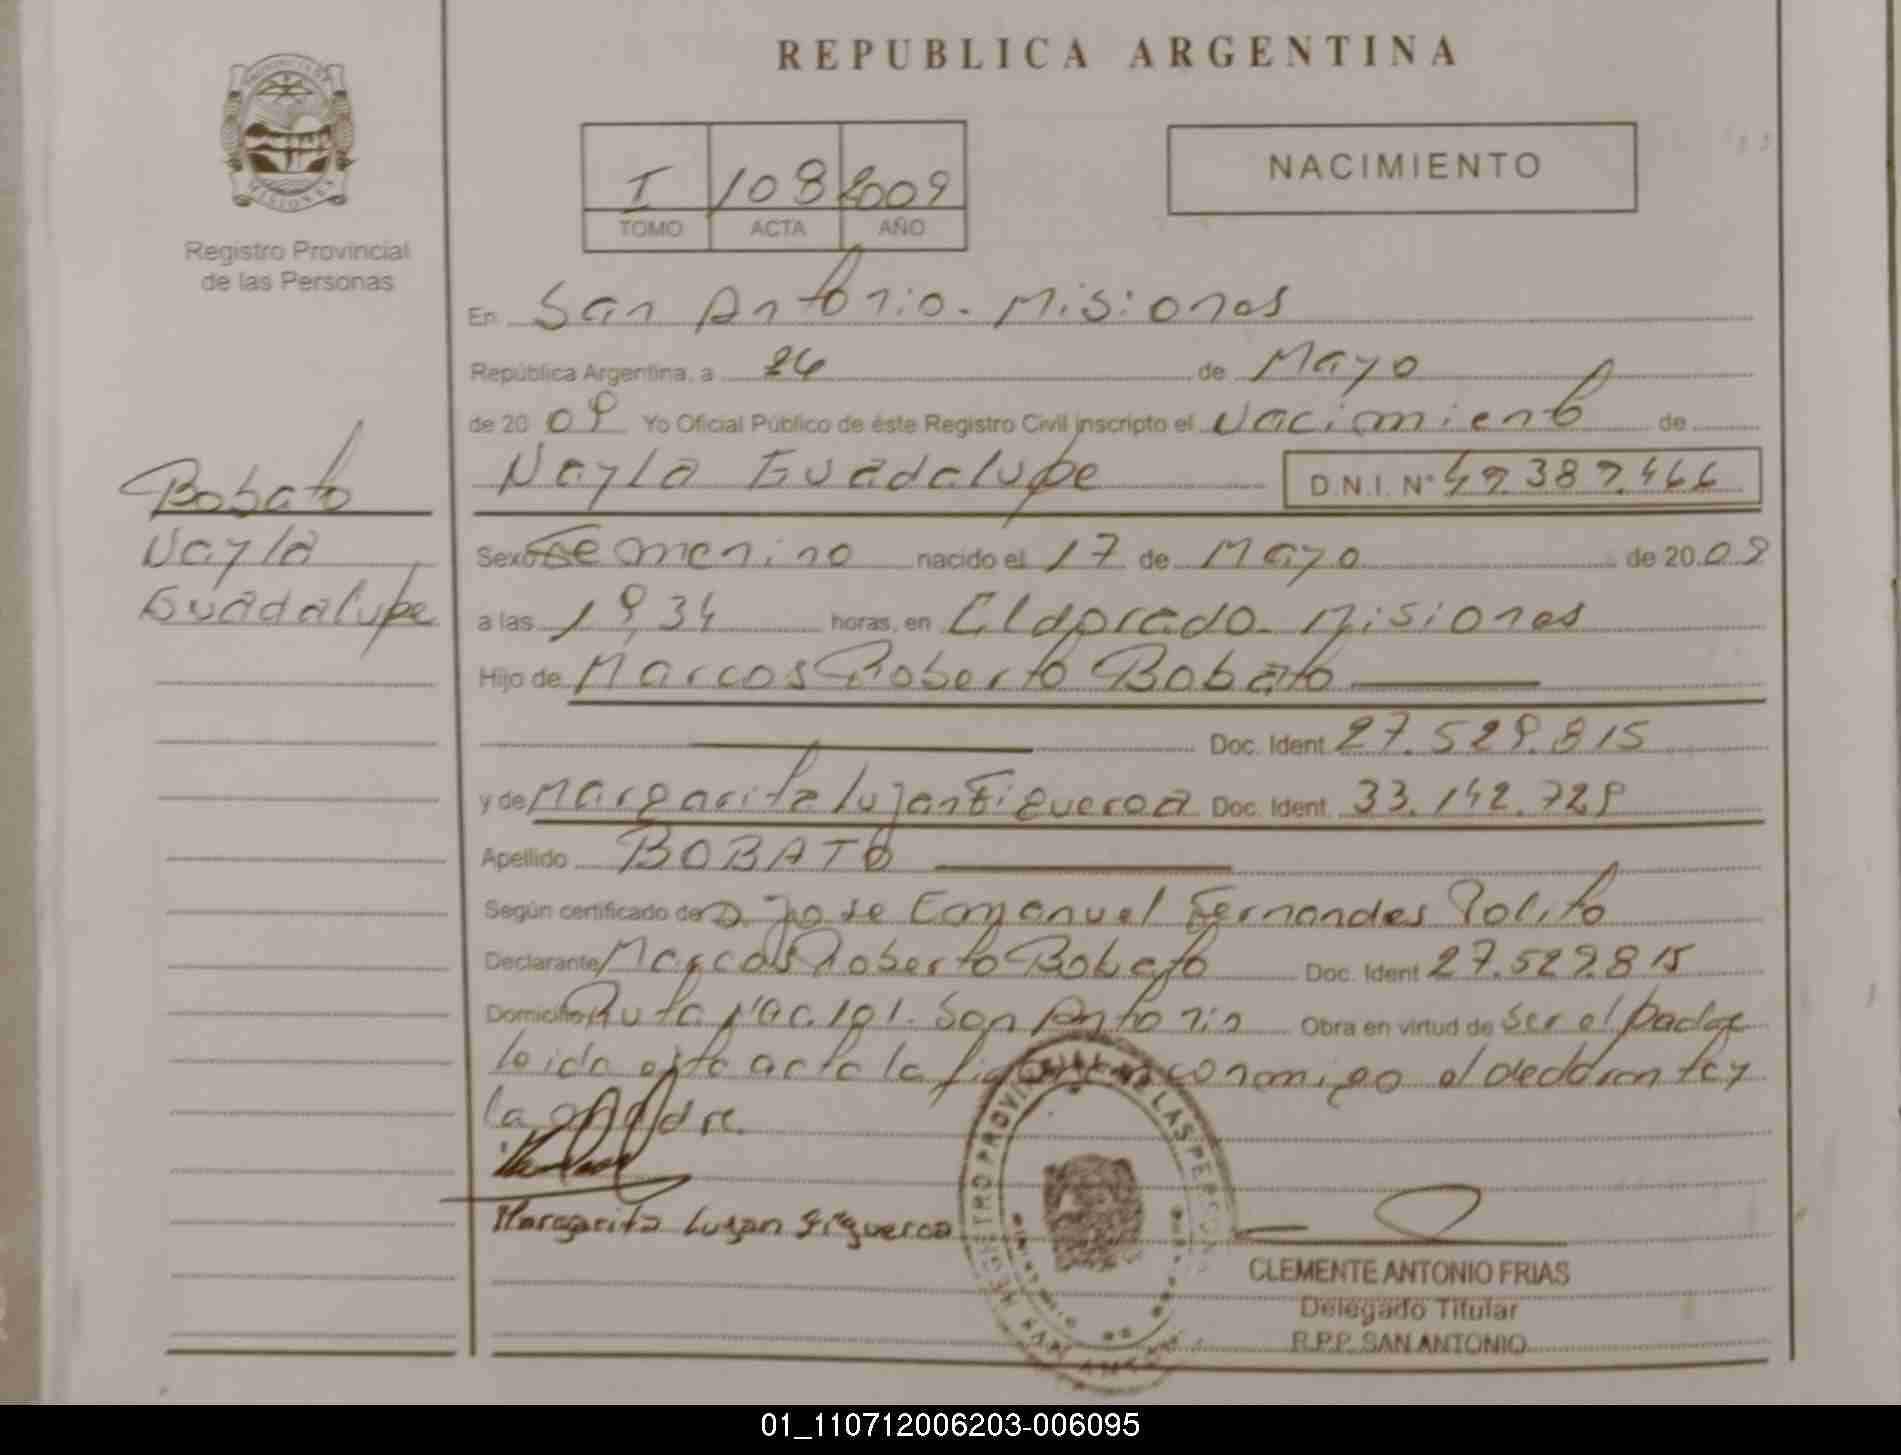 REPUBLICA ARGENTINA
PROVINCIA DE
MISIONES
Registro Provincial
de las Personas
I 108 2009
TOMO ACTA AÑO
NACIMIENTO
En San Antonio - Misiones
República Argentina, a 26 de Mayo
de 20 09 Yo Oficial Público de éste Registro Civil inscripto el Nacimiento de
Nayla Guadalupe D.N.I. Nº 49.389.466
Bobato
Nayla
Guadalupe
Sexo Femenino nacido el 17 de Mayo de 20 09
a las 19,34 horas, en Eldorado - Misiones
Hijo de Marcos Roberto Bobato
Doc. Ident. 27.529.815
y de Margarita Lujan Figueroa Doc. Ident. 33.142.729
Apellido BOBATO
Según certificado de D. Jose Emanuel Fernandes Polito
Declarante Marcos Roberto Bobato Doc. Ident 27.529.815
Domicilio Ruta Nac. 101. San Antonio Obra en virtud de Ser el padre
leida esta acta la conmigo el declarante y
la madre.
Margarita Lujan Figueroa
CLEMENTE ANTONIO FRIAS
Delegado Titular
R.P.P. SAN ANTONIO
01_110712006203-006095